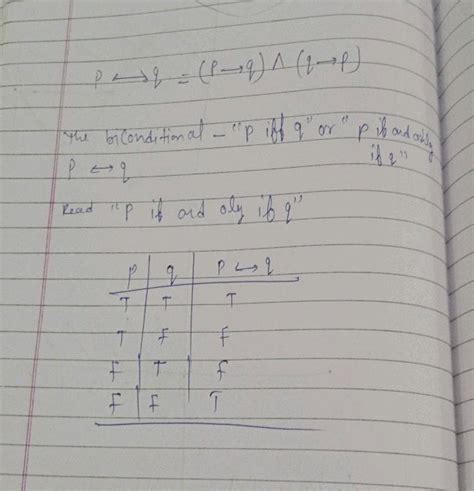 P ⟷ q = (P → q) ∧ (q → P)
The biconditional - "P iff q" or "P if and only if q"
P ⟷ q
Read "P if and oly if q"
P q P ⟷ q
T T T
T F F
F T F
F F T